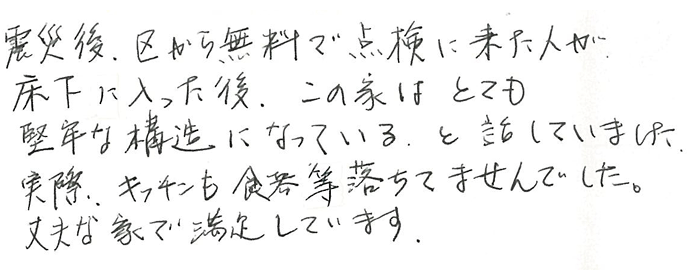 震災後、区から無料で点検に来た人が、
床下に入った後、この家はとても
堅牢な構造になっている、と話していました。
実際、キッチンも食器等落ちてませんでした。
丈夫な家で満足しています。